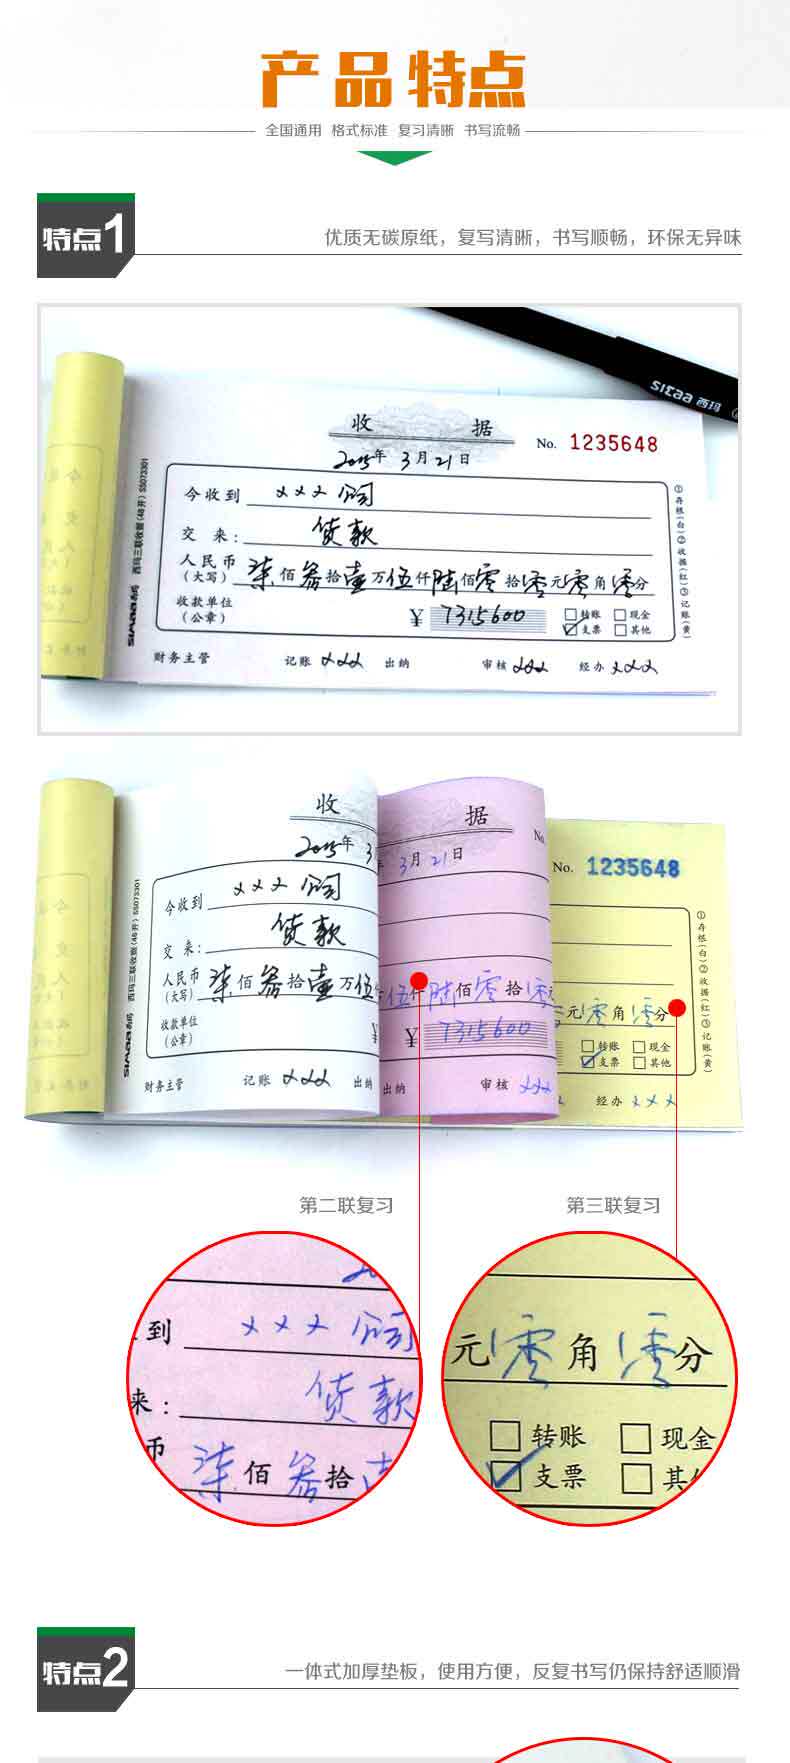 产品特点
全国通用 格式标准 复习清晰 书写流畅
特点1
优质无碳原纸，复写清晰，书写顺畅，环保无异味
simaa 西玛
收 据
No. 1235648
2015年 3月 21日
今收到 xxx 公司
交 来: 货款
人民币(大写) 柒佰叁拾壹万伍仟陆佰零拾零元零角零分
收款单位(公章)
¥ 7315600
转账 现金
支票 其他
财务主管 记账 xxx 出纳 审核 xxx 经办 xxx
①存根(白)②收据(红)③记账(黄)
西玛三联收据(48开) SS073301
simaa 西玛
收
2015年 3
今收到 xxx 公司
交 来: 货款
人民币(大写) 柒佰叁拾壹万伍
收款单位(公章)
财务主管 记账 xxx 出纳
西玛三联收据(48开) SS073301
simaa 西玛
据
No.
3月 21日
伍仟陆佰零拾零元
¥ 7315600
出纳 审核 xxx
No. 1235648
元零角零分
转账 现金
支票 其他
经办 xxx
①存根(白)②收据(红)③记账(黄)
第二联复习 第三联复习
到 xxx 公司
来: 货款
币 柒佰叁拾
元零角零分
转账 现金
支票 其
特点2
一体式加厚垫板，使用方便，反复书写仍保持舒适顺滑